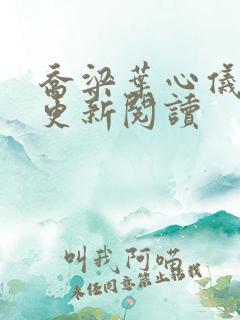 乔梁葉心儀
更新閱讀
叫我阿喵
未经同意禁止转载